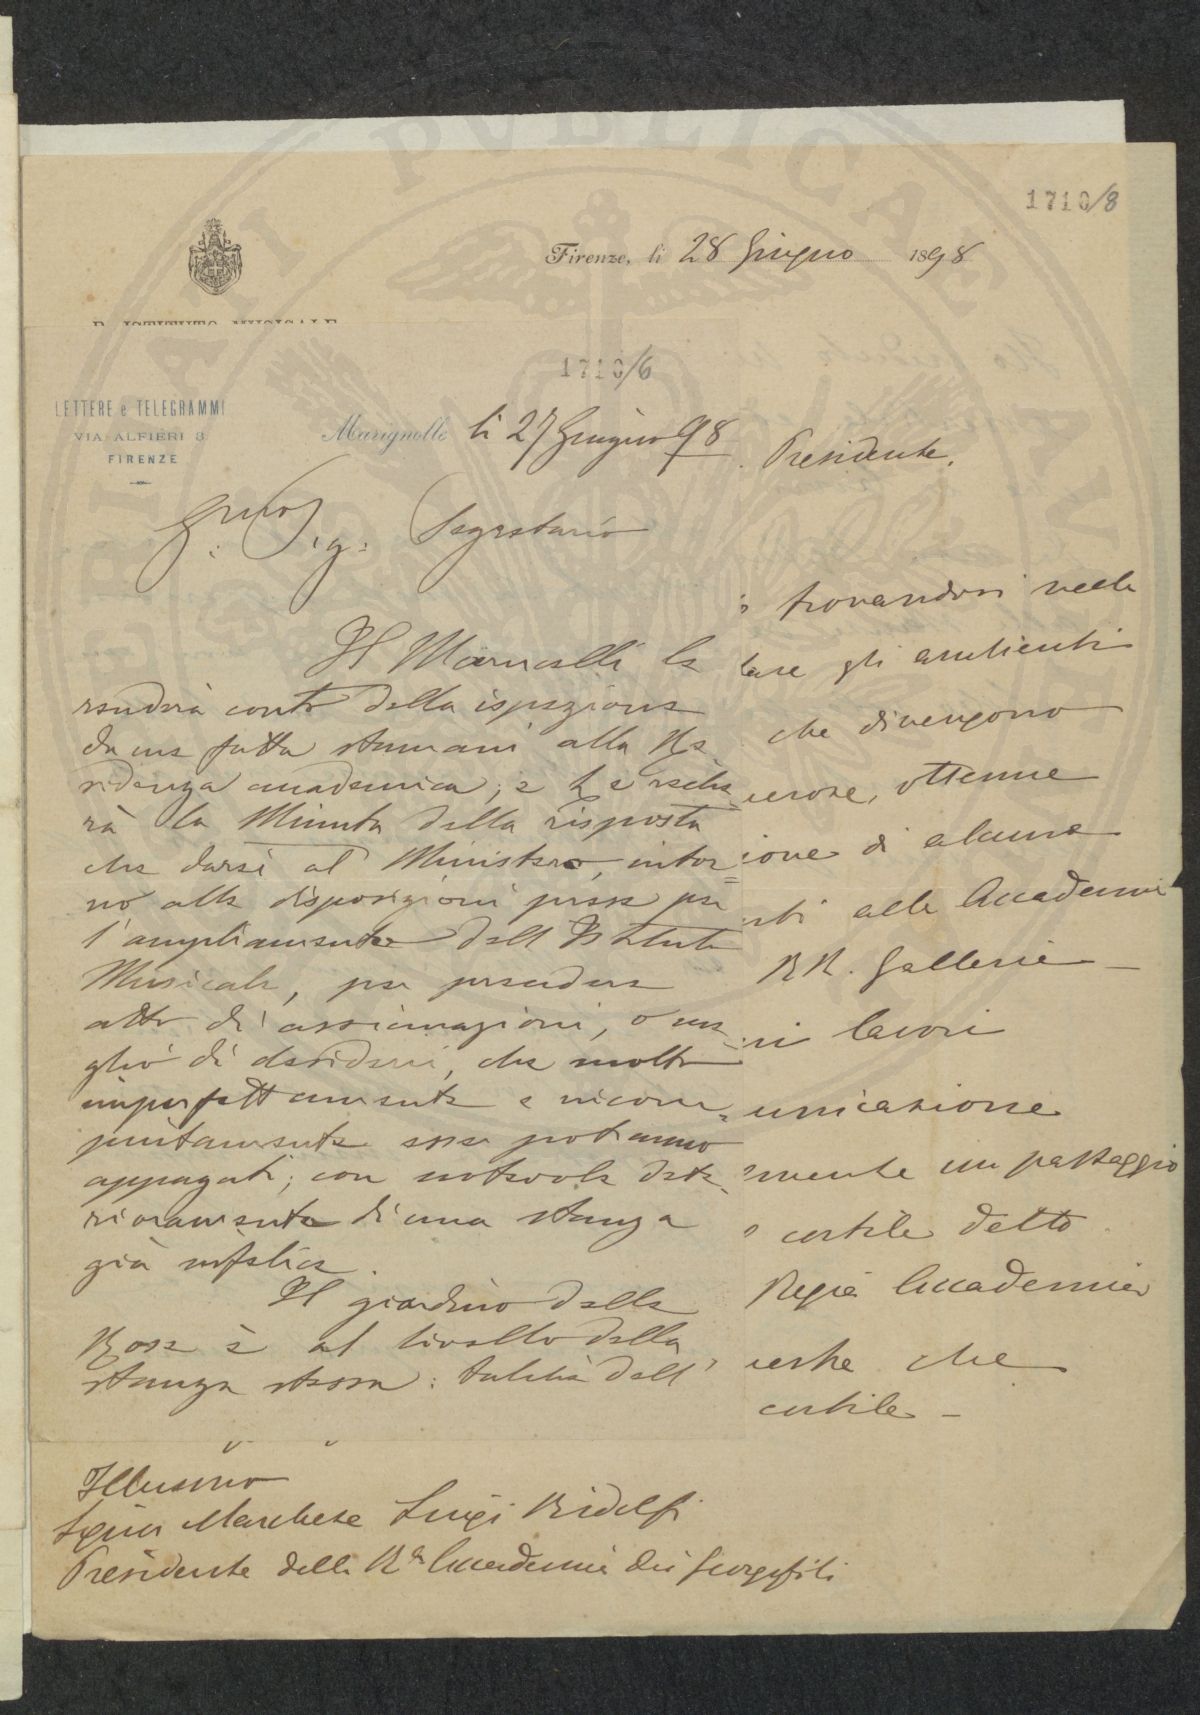 1710/8
Firenze, li 28 Giugno 1898
R. ISTITUTO MUSICALE
1710/6
LETTERE e TELEGRAMMI
VIA ALFIERI 3
FIRENZE
Marignolle li 27 Giugno 98
G.mo Sig. Segretario
Il Marucelli le
renderà conto della ispezione
da me fatta stamani alla Re
sidenza accademica; e Le reche
rà la Minuta della risposta
che darsi al Ministero, intor=
no alle disposizioni prese per
l'ampliamento dell'Istituto
Musicale, per prendere
atto di assicurazioni, o me
glio di desiderii, che molto
imperfettamente e incom=
piutamente esser potranno
appagati; con notevole dete
rioramento di una stanza
già infelice.
Il giardino delle
Rose è al livello della
stanza stessa: talchè dell'
Presidente.
trovandosi nella
tare gli ambienti
che divengono
ottenne
ione di alcune
nti alle Accademie
RR. Gallerie
ni lavori
unicazione
mente un passaggio
cortile detto
Regia Accademia
che
cortile
Illusmo
Signor Marchese Luigi Ridolfi
Presidente della Ra Accademia dei Georgofili